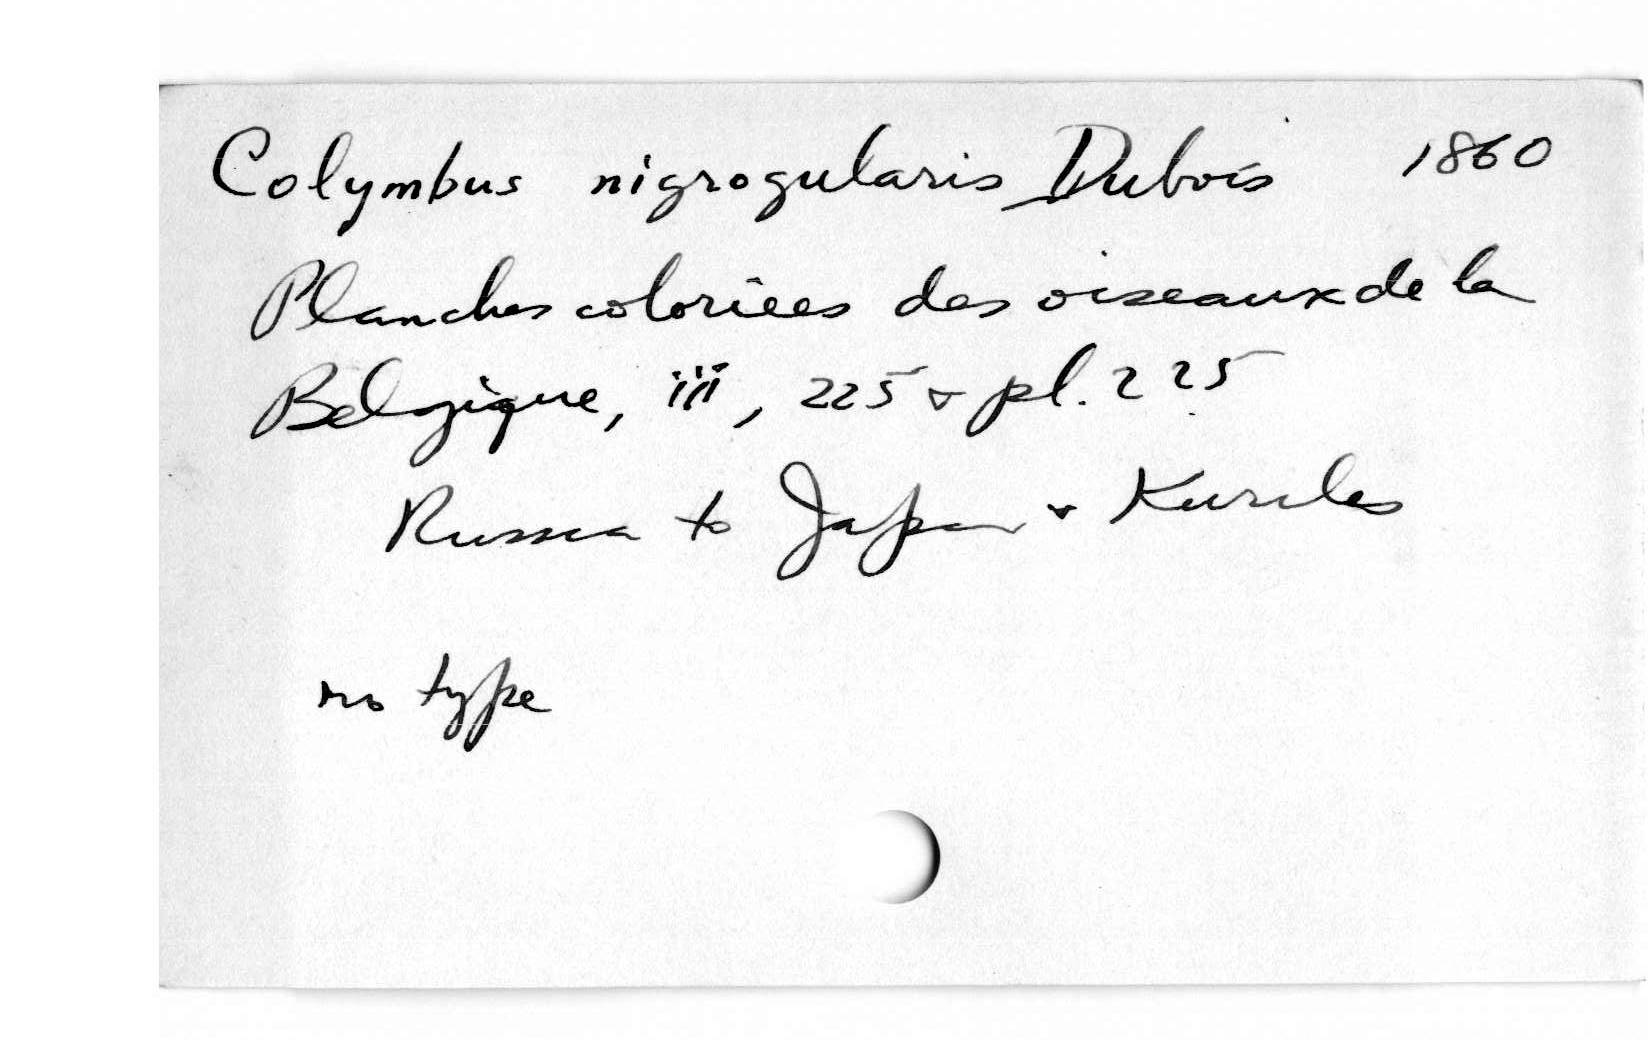 Colymbus nigrogularis Dubois 1860
Planches coloriees des oiseaux de la
Belgique, iii, 225 & pl. 225
Russia to Japan & Kuriles
no type